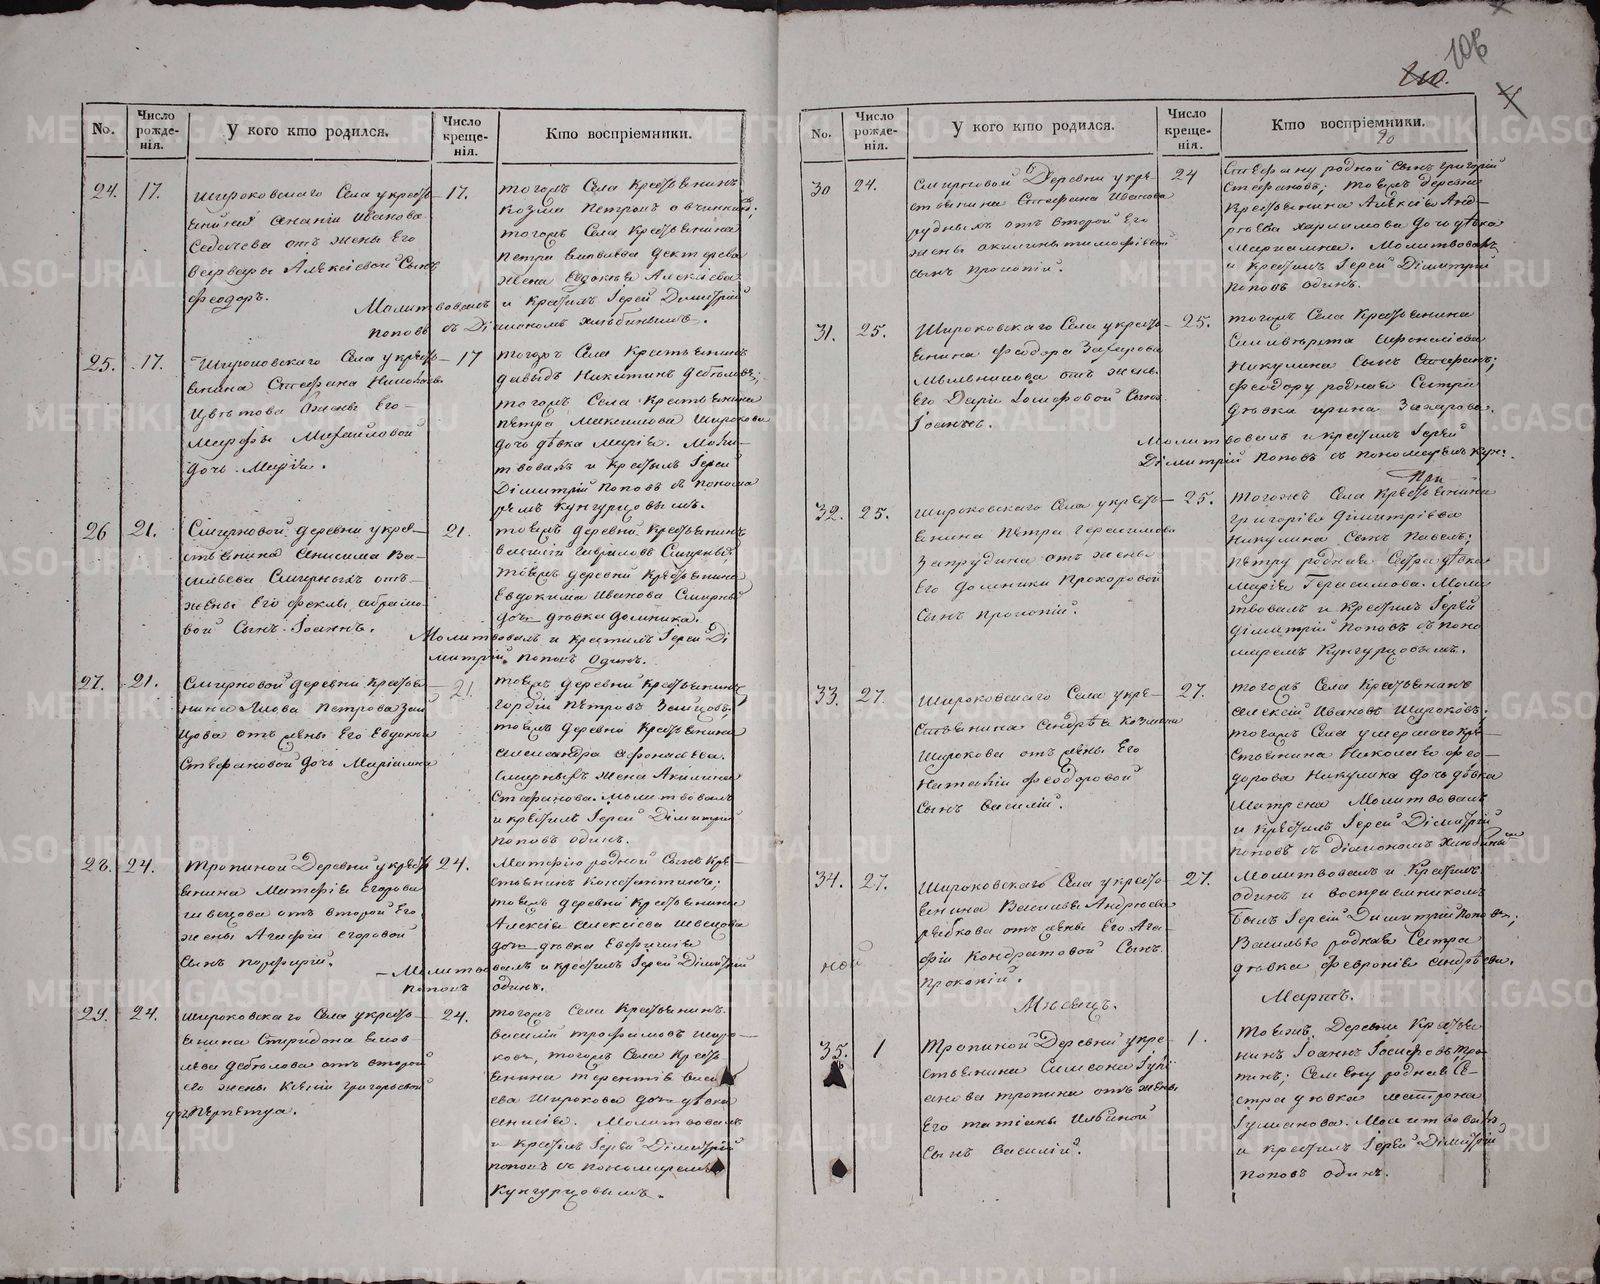 106
110.
No.
Число рожде-нія.
У кого кто родился.
Число креще-нія.
Кто воспріемники.
24. 17.
Широковскаго Села у кресть-
янина Ананіи Иванова
Седачева отъ жены Его
Варвары Алексіевой Сынъ
Феодоръ.
17.
тогожъ Села Крестьянинъ
Козма Петровъ Овчинниковъ;
тогожъ Села Крестьянина
Петра
жена Евдокія Алексіева
Молитвовалъ и Крестилъ Іерей Димитрій
Поповъ съ Діакономъ Хлюбинымъ.
25. 17.
Широковскаго Села у кресть-
янина Стефана Николаева
Цвѣтова жены Его
Марѳы Михайловой
дочь Марія.
17
тогожъ Села Крестьянинъ
Давыдъ Никитинъ
тогожъ Села Крестьянина
Петра Максимова Широкова
дочь дѣвка Марія. Моли-
твовалъ и Крестилъ Іерей
Димитрій Поповъ съ Понома
ремъ Кунгурцовымъ.
26 21.
Смирновой деревни у кре-
стьянина Анисима Ва-
сильева Смирныхъ отъ
жены Его Феклы Абрамо-
вой Сынъ Іоаннъ.
21.
тоежъ деревни Крестьянинъ
Гавріиловъ Смирныхъ;
тоежъ деревни Крестьянина
Евдокима Иванова Смирных
дочь дѣвка Домника.
Молитвовалъ и крестилъ Іерей Ди
митрій Поповъ Одинъ.
27. 21.
Смирновой деревни Крестья
нина Іюва Петрова Заи
цова отъ жены Его Евдокіи
Стефановой дочь Маріамна
21.
тоежъ деревни Крестьянинъ
Гордій Петровъ Заицовъ;
тоежъ деревни Крестьянина
Александра Афонасьева
Смирныхъ жена Акилина
Стефанова. Молитвовалъ
и крестилъ Іерей Димитрій
Поповъ одинъ.
28. 24.
Тропиной Деревни у кресть
янина Матфія Егорова
Швецова отъ второй Его
жены Агафіи Егоровой
Сынъ Порфирій.
24.
Матфію родной Сынъ Кре-
стьянинъ Константинъ;
тоежъ деревни Крестьянина
Алексія Алексіева Швецова
дочь дѣвка Евфимія
Молитвовалъ и крестилъ Іерей Димитрій
Поповъ одинъ.
29. 24.
Широковскаго Села у кресть-
янина Спиридона
отъ второй
Его жены Ксеніи Григорьевой
дочь Перпетуа.
24.
тогожъ Села Крестьянинъ
Василій Трофимовъ Широ-
ковъ, тогожъ Села Кресть
янина Терентія Василь
ева Широкова дочь дѣвка
Анисія. Молитвовалъ
и крестилъ Іерей Димитрій
Поповъ съ Пономаремъ
Кунгурцовымъ.
No.
Число рожде-нія.
У кого кто родился.
Число креще-нія.
Кто воспріемники.
30 24.
Смирновой Деревни у кре-
стьянина Стефана Иванова
отъ второй Его
жены Акилины Тимофіевой
Сынъ Прокопій.
24
Стефану родной Сынъ Григорій
Стефановъ; тоежъ деревни
Крестьянина Алексія Анд-
реева Харламова дочь дѣвка
Маріамна. Молитвовалъ
и Крестилъ Іерей Димитрій
Поповъ Одинъ.
31. 25.
Широковскаго Села у кресть-
янина Феодора Захарова
Мыльникова отъ жены
Его Даріи Іосифовой Сынъ
Іоаннъ.
25.
тогожъ Села Крестьянина
Никулина Сынъ Стефанъ;
Феодору родная Сестра
дѣвка Ирина Захарова.
Молитвовалъ и крестилъ Іерей
Димитрій Поповъ съ пономаремъ Кун:
32. 25.
Широковскаго Села у кресть-
янина Петра Герасимова
Запрудина отъ жены
Его Домники Прохоровой
Сынъ Прокопій.
25.
тогожъ Села Крестьянина
Григорія Димитріева
Никулина Сынъ Павелъ;
Петру родная Сестра дѣвка
Марія Герасимова. Моли
твовалъ и Крестилъ Іерей
Димитрій Поповъ съ Поно
маремъ Кунгурцовымъ.
33. 27.
Широковскаго Села у кре-
стьянина Андрѣя Козмина
Широкова отъ жены Его
Наталіи Феодоровой
Сынъ Василій.
27.
тогожъ Села Крестьянинъ
Алексій Ивановъ Широковъ;
тогожъ Села умершаго Кре-
стьянина Николая Фео-
дорова Никулина дочь дѣвка
Матрена Молитвовалъ
и крестилъ Іерей Димитрій
Поповъ съ діакономъ Хлюбинымъ
34. 27.
Широковскаго Села у кресть-
янина Василья Андрѣева
Рыбкова отъ жены Его Ага-
фіи Кондратовой Сынъ
Прокопій.
27.
Молитвовалъ и Крестилъ
одинъ и воспріемникомъ
былъ Іерей Димитрій Поповъ;
Василью родная Сестра
дѣвка Февронія Андрѣева.
Мѣсяцъ.
Мартъ.
35. 1
Тропиной Деревни у кре-
стьянина Симеона Гурі
анова Тропина отъ жены
Его Татіаны Ильиной
Сынъ Василій.
1.
тоежъ Деревни Крестья
нинъ Іоаннъ Іосифовъ Тро
пинъ; Семену родная Се-
стра дѣвка Матрона
Гурианова. Молитвовалъ
и крестилъ Іерей Димитрій
Поповъ одинъ.
METRIKI.GASO-URAL.RU